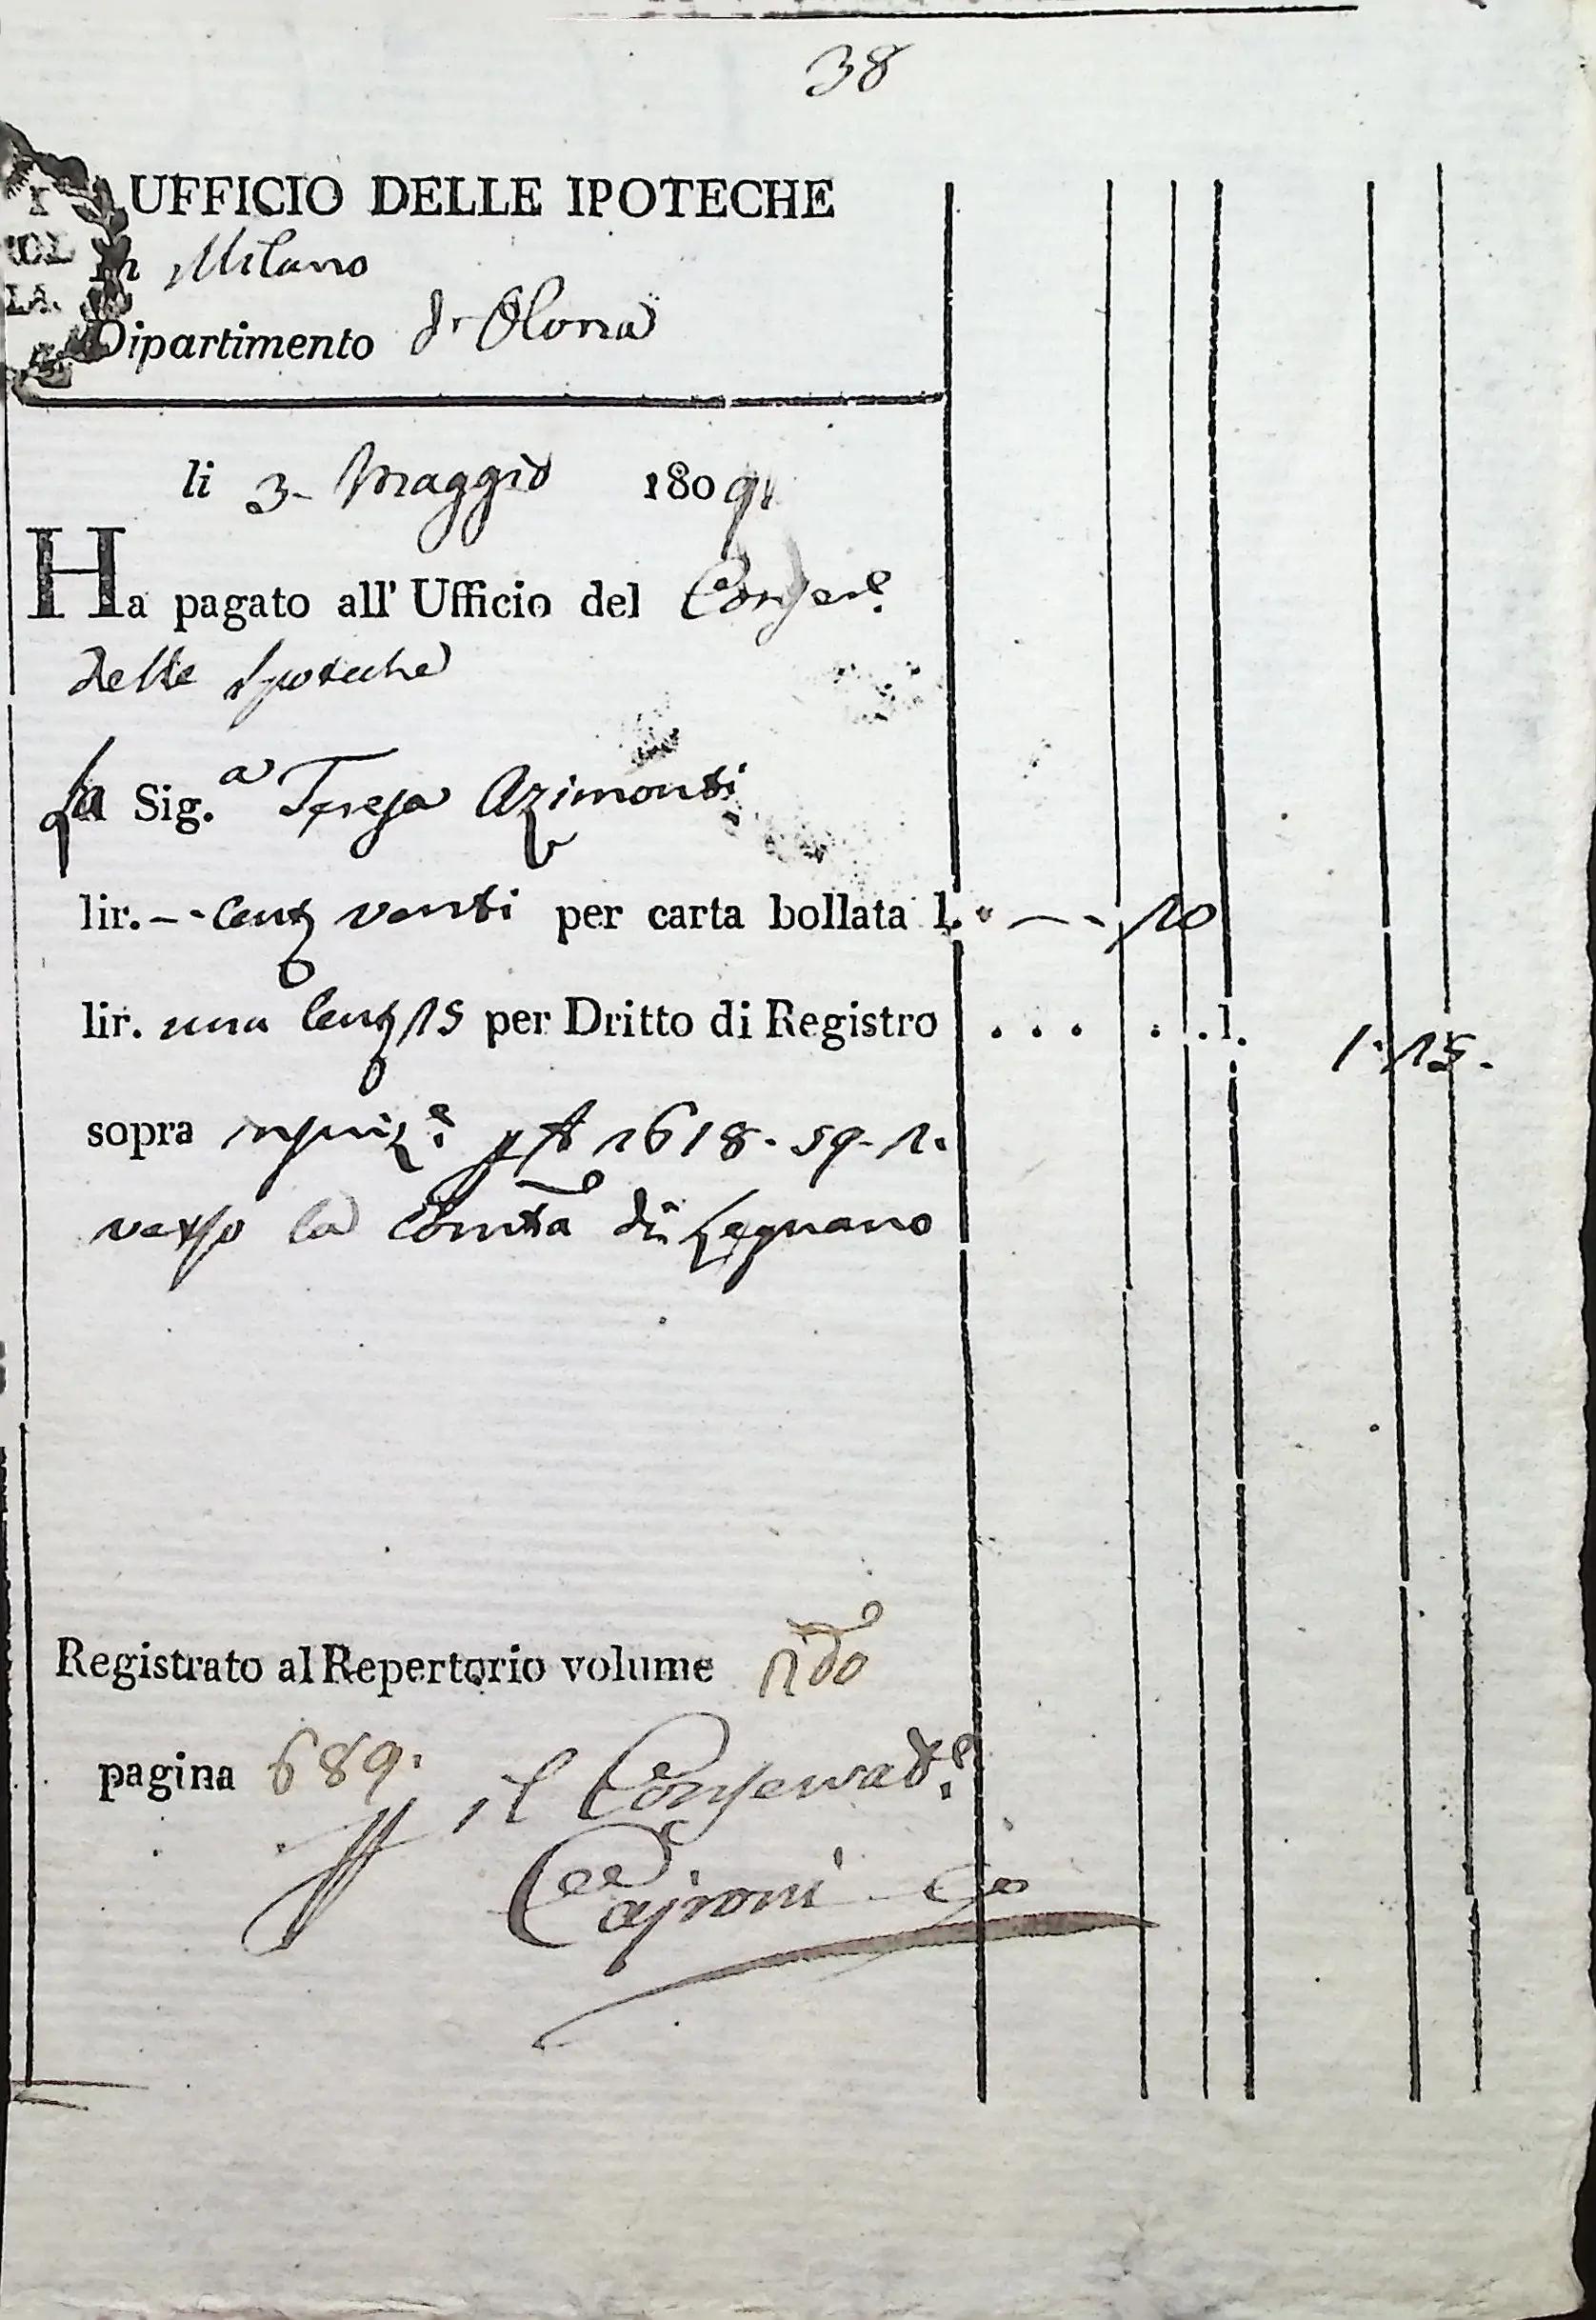 38
UFFICIO DELLE IPOTECHE
In Milano
Dipartimento d'Olona
li 3 Maggio 1809
Ha pagato all' Ufficio del Conser.e
delle Ipoteche
La Sig.a Teresa Azimonti
lir. - - Cent venti per carta bollata l. - - 20
lir. una Cent 15 per Dritto di Registro . . . . . . l. 1. 15.
sopra 1618. 59. 2.
verso la Comta di Legnano
Registrato al Repertorio volume
pagina 689.
il Conservat.e
Cajroni